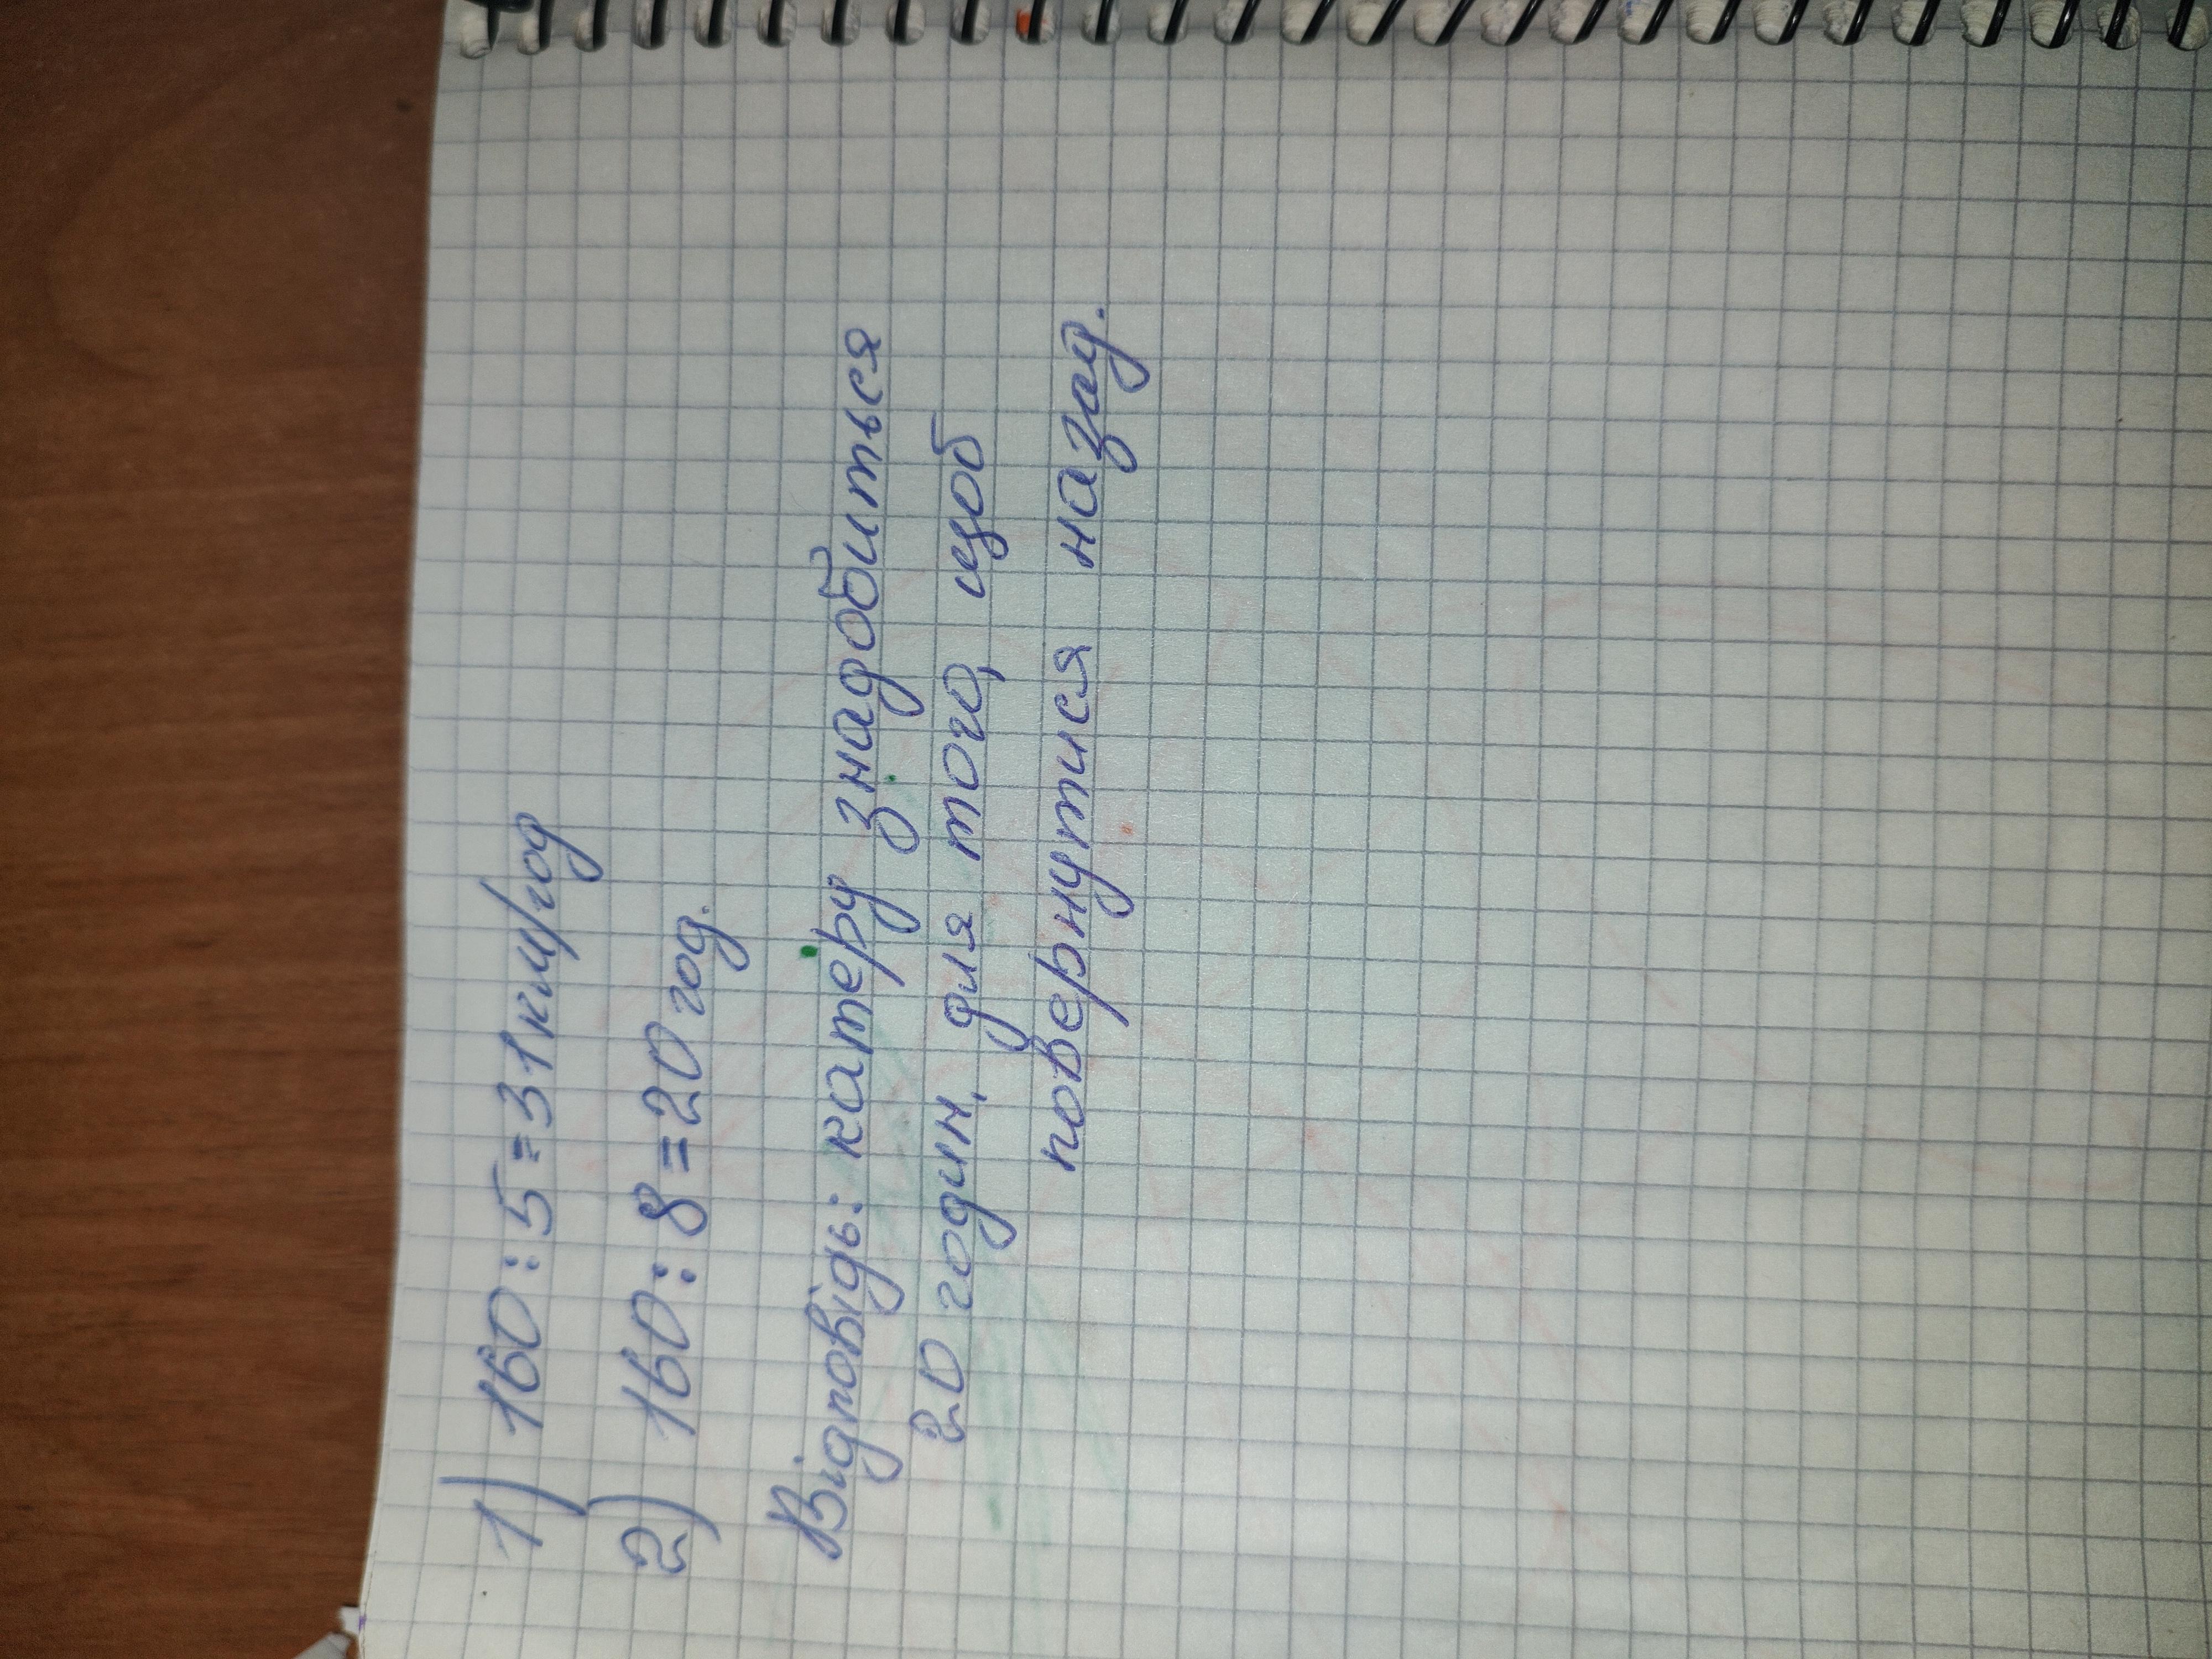 1) 160 : 5 = 31 км/год
2) 160 : 8 = 20 год.
Відповідь: катеру знадобиться
20 годин, для того, щоб
повернутися назад.